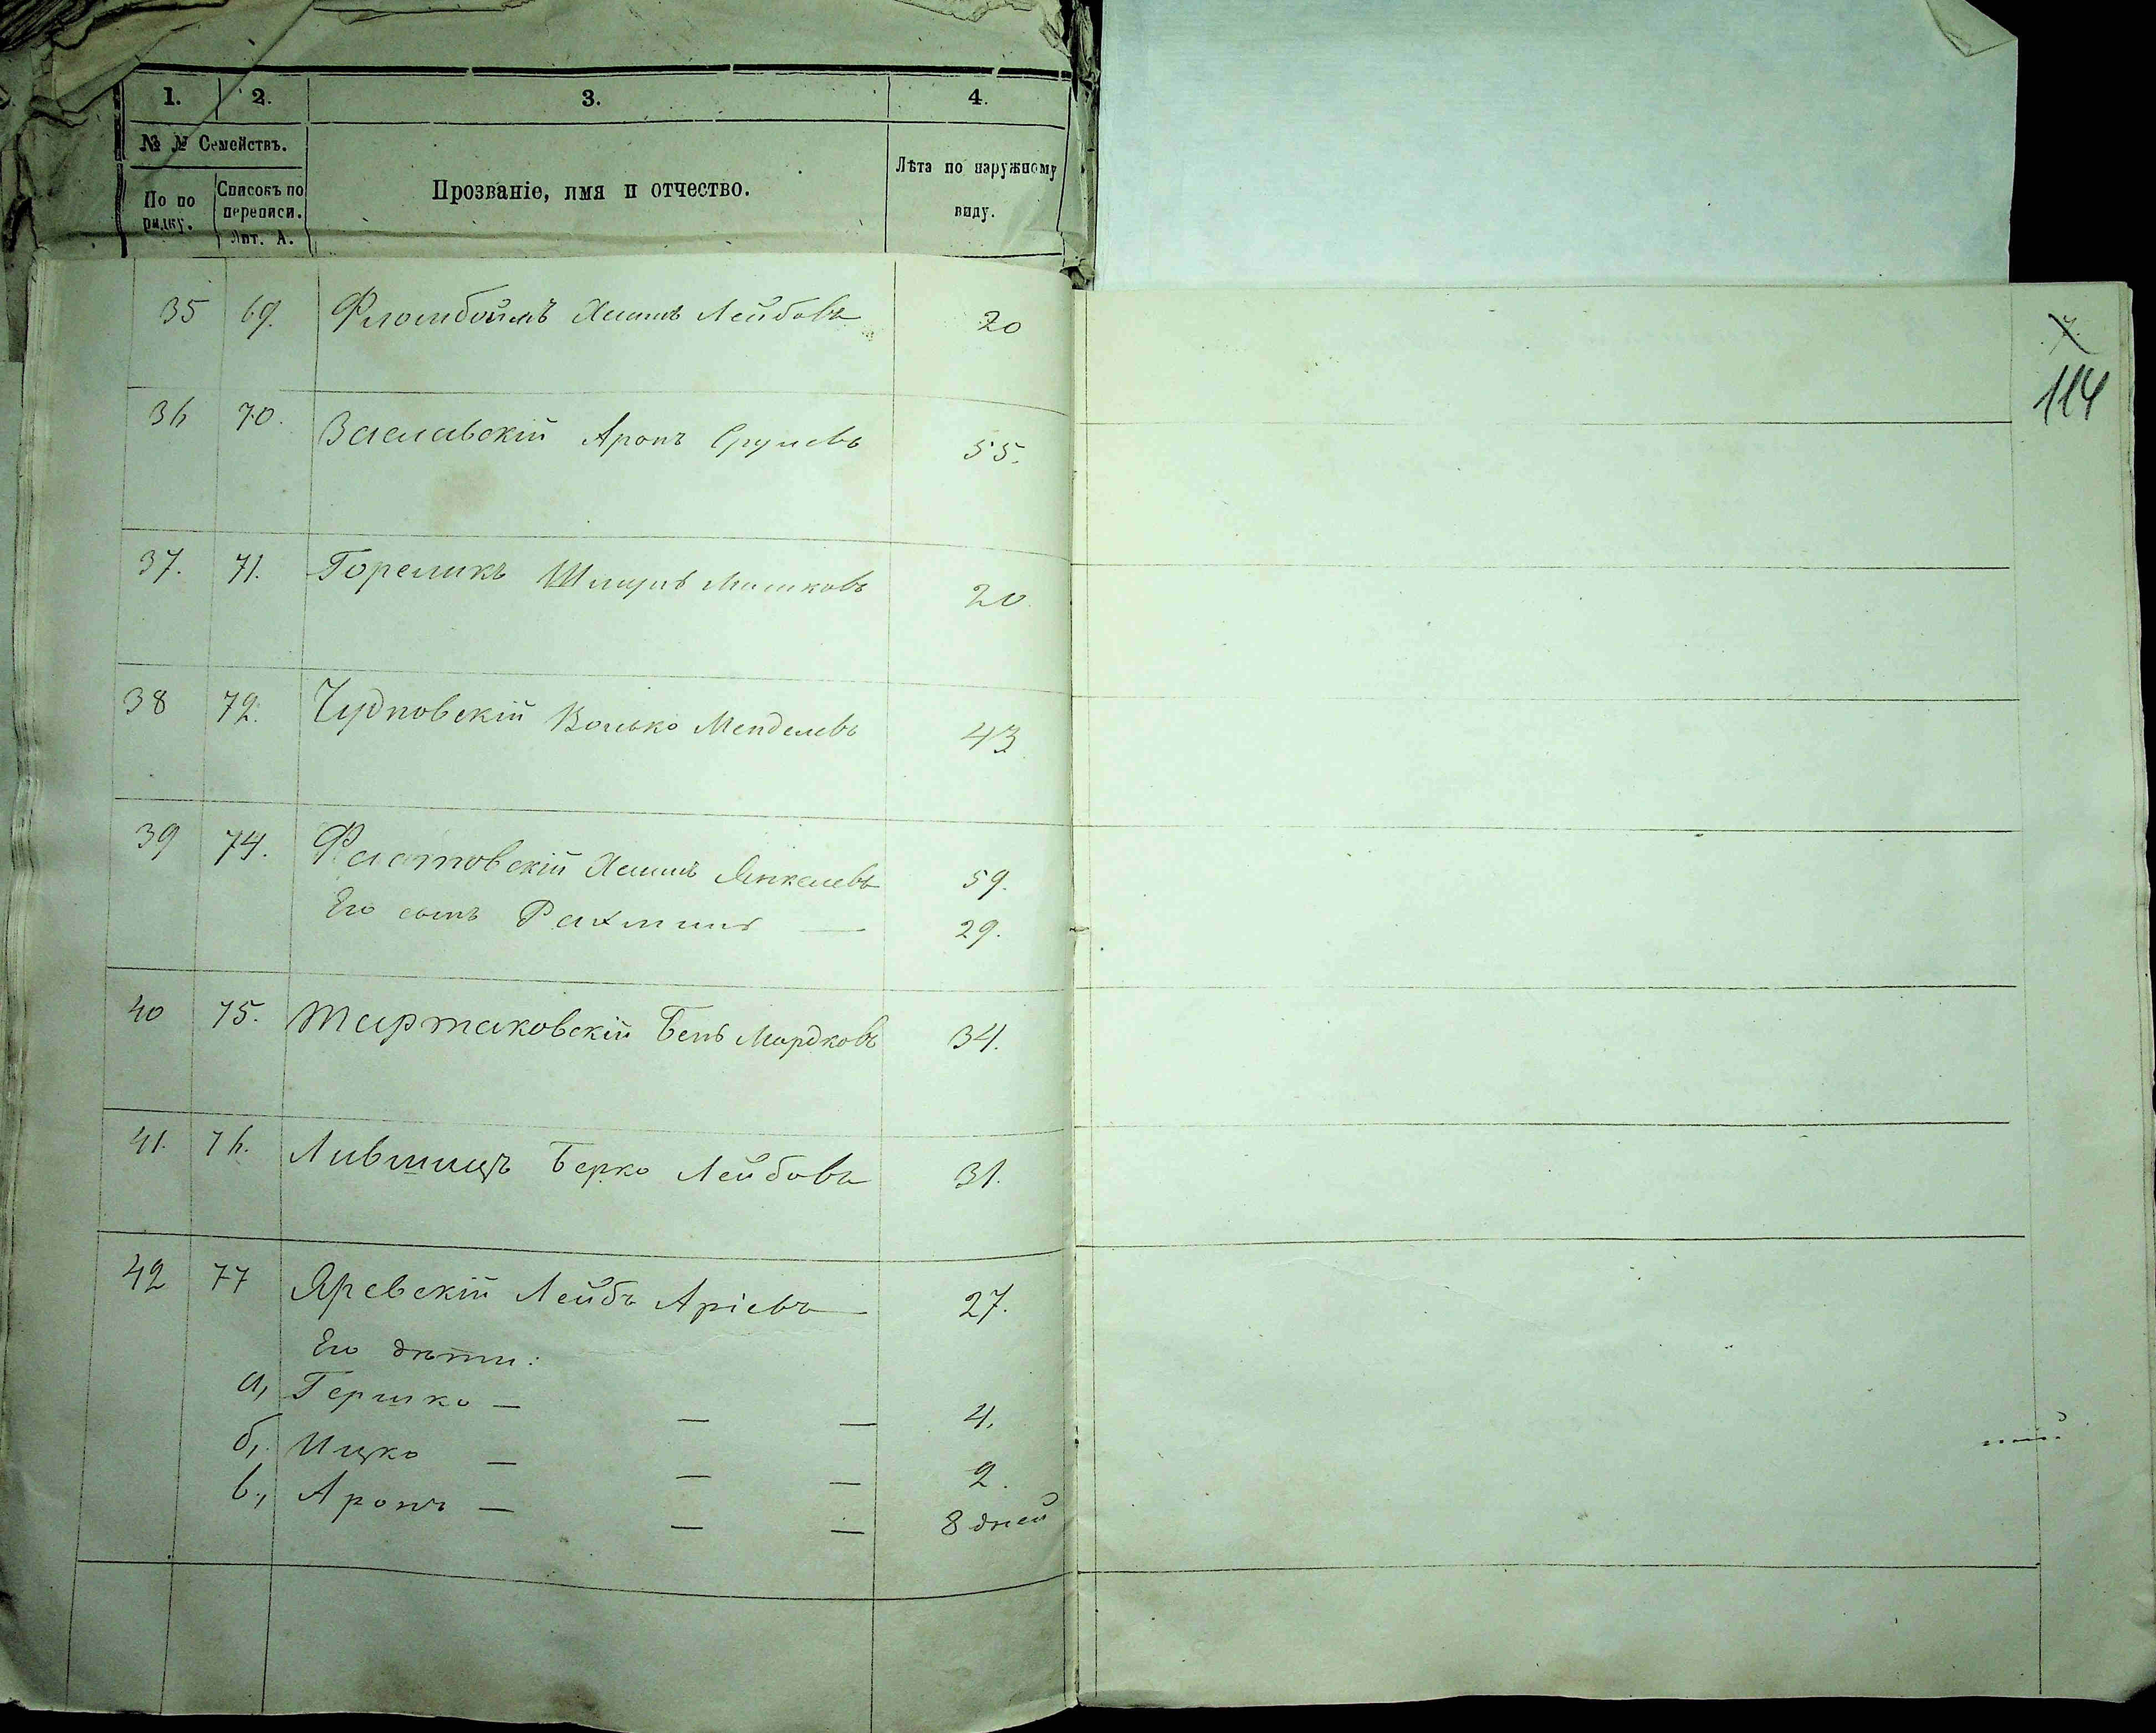 1. 2. 3. 4.
№ № Семействъ.
По по рядку. Списокъ по переписи. Лит. А. Прозваніе, имя и отчество. Лѣта по наружному виду.
35 69. Фломбоймъ Хаимъ Лейбовъ 20
36 70. Заславскій Аронъ Срулевъ 55.
37. 71. Гореликъ Шмулъ Мошковъ 20.
38 72. Чудновскій Волько Менделевъ 43
39 74. Фастовскій Хаимъ Янкелевъ 59.
Его сынъ Рахмилъ — 29.
40 75. Тартаковскій Бенъ Мордковъ 34.
41. 76. Лившицъ Берко Лейбовъ 31.
42 77 Яревскій Лейбъ Аріевъ 27.
Его дѣти:
а, Гершко — — — 4.
б, Ицко — — — 2.
в, Аронъ — — — 8 дней
7.
114